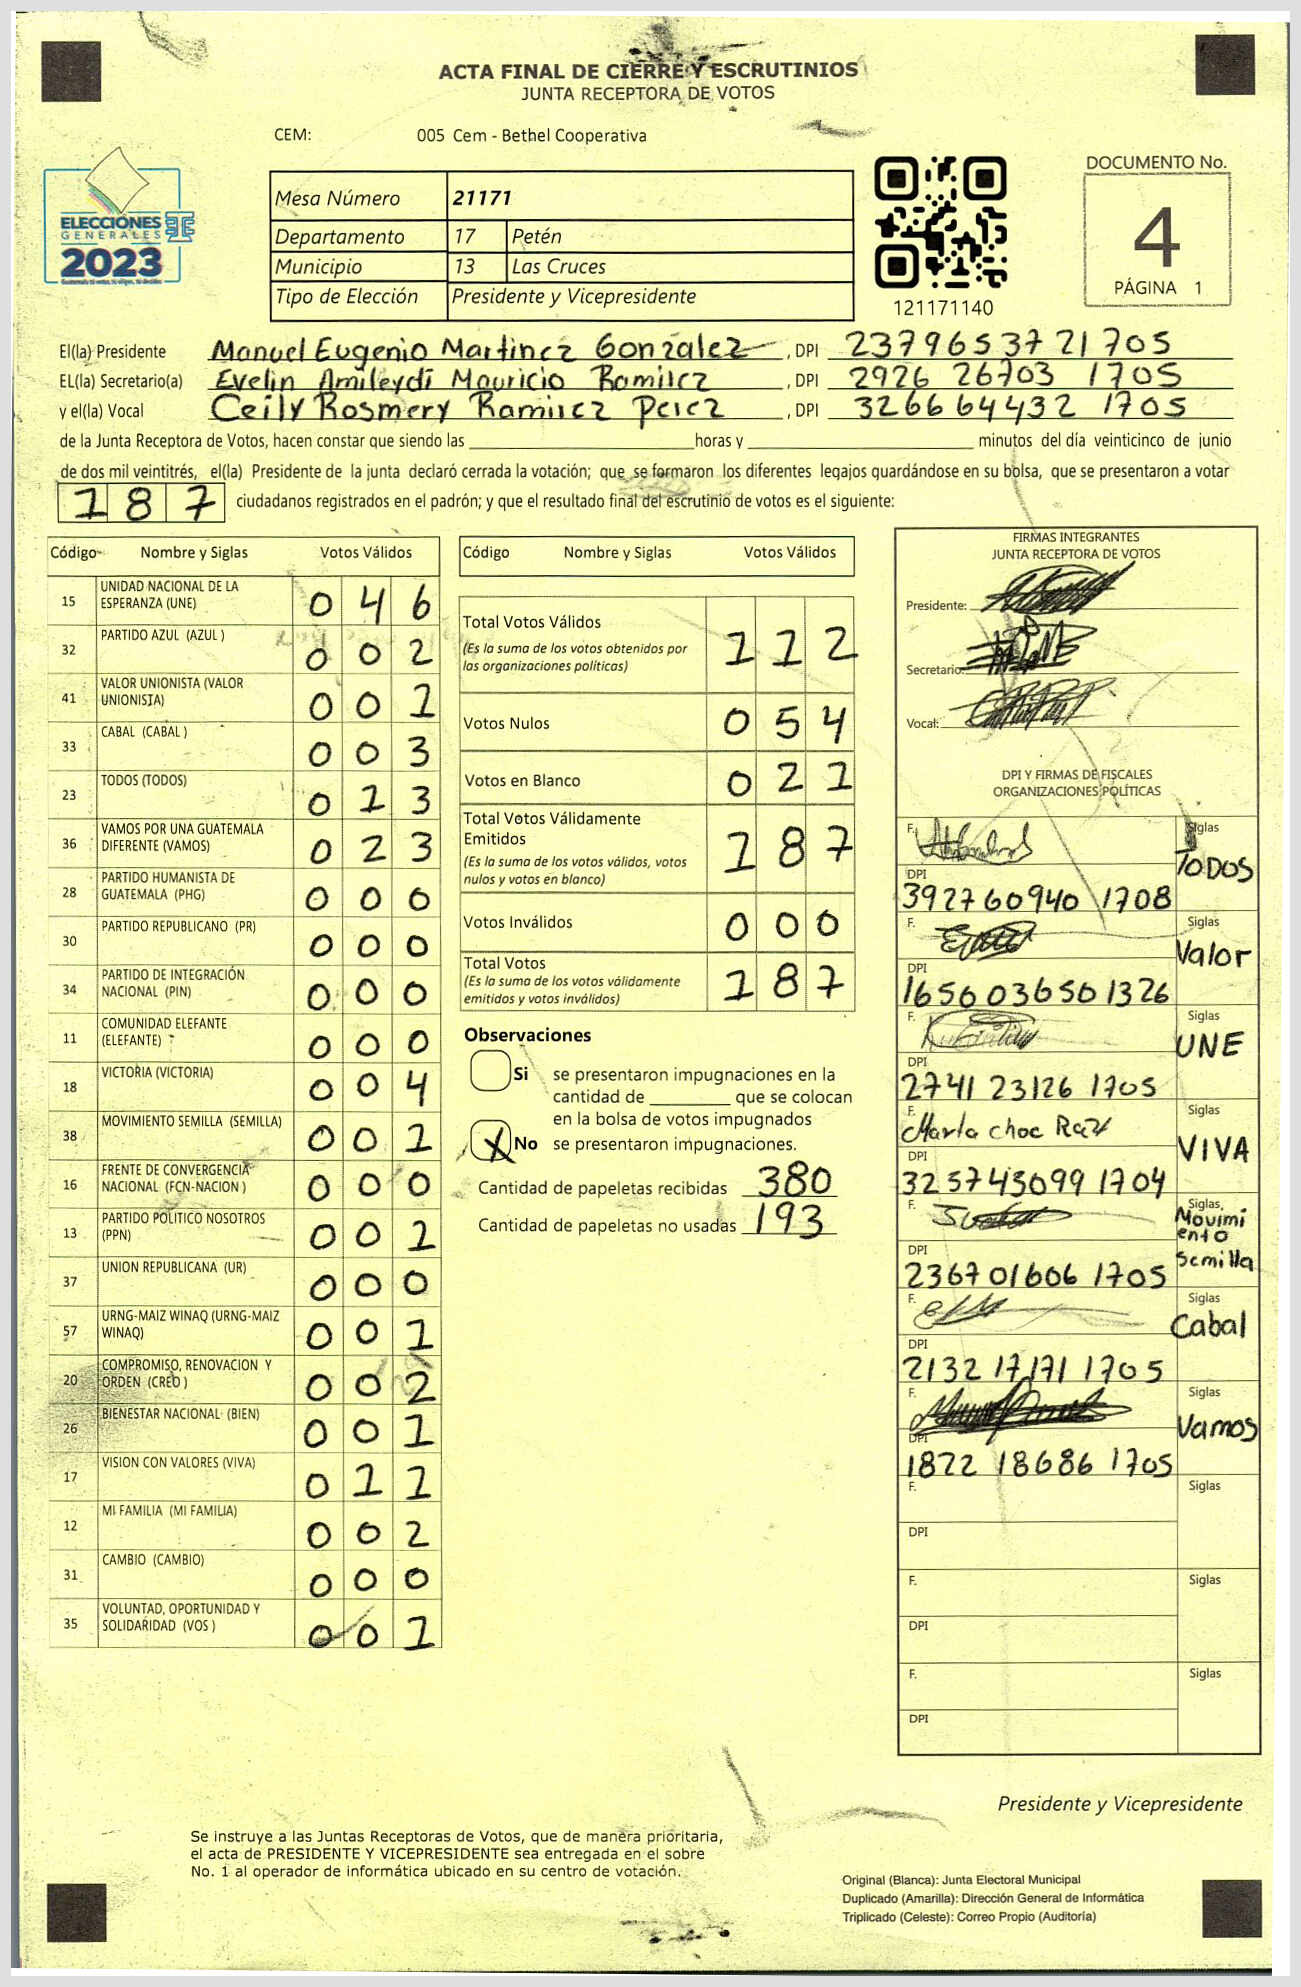 ACTA FINAL DE CIERRE Y ESCRUTINIOS
JUNTA RECEPTORA DE VOTOS
CEM: 005 Cem - Bethel Cooperativa
ELECCIONES
GENERALES
2023
Mesa Número 21171
Departamento 17 Petén
Municipio 13 Las Cruces
Tipo de Elección Presidente y Vicepresidente
121171140
DOCUMENTO No.
4
PÁGINA 1
El(la) Presidente Manuel Eugenio Martinez Gonzalez, DPI 2379653721705
EL(la) Secretario(a) Evelin Amileydi Mauricio Ramirez, DPI 2926 26703 1705
y el(la) Vocal Ceily Rosmery Ramirez Perez, DPI 326664432 1705
de la Junta Receptora de Votos, hacen constar que siendo las ____ horas y ____ minutos del día veinticinco de junio
de dos mil veintitrés, el(la) Presidente de la junta declaró cerrada la votación; que se formaron los diferentes legajos quardándose en su bolsa, que se presentaron a votar
187 ciudadanos registrados en el padrón; y que el resultado final del escrutinio de votos es el siguiente:
Código Nombre y Siglas Votos Válidos
15 UNIDAD NACIONAL DE LA ESPERANZA (UNE) 046
32 PARTIDO AZUL (AZUL ) 002
41 VALOR UNIONISTA (VALOR UNIONISTA) 001
33 CABAL (CABAL ) 003
23 TODOS (TODOS) 013
36 VAMOS POR UNA GUATEMALA DIFERENTE (VAMOS) 023
28 PARTIDO HUMANISTA DE GUATEMALA (PHG) 000
30 PARTIDO REPUBLICANO (PR) 000
34 PARTIDO DE INTEGRACIÓN NACIONAL (PIN) 000
11 COMUNIDAD ELEFANTE (ELEFANTE) 000
18 VICTORIA (VICTORIA) 004
38 MOVIMIENTO SEMILLA (SEMILLA) 001
16 FRENTE DE CONVERGENCIA NACIONAL (FCN-NACION ) 000
13 PARTIDO POLITICO NOSOTROS (PPN) 001
37 UNION REPUBLICANA (UR) 000
57 URNG-MAIZ WINAQ (URNG-MAIZ WINAQ) 001
20 COMPROMISO, RENOVACION Y ORDEN (CREO ) 002
26 BIENESTAR NACIONAL (BIEN) 001
17 VISION CON VALORES (VIVA) 011
12 MI FAMILIA (MI FAMILIA) 002
31 CAMBIO (CAMBIO) 000
35 VOLUNTAD, OPORTUNIDAD Y SOLIDARIDAD (VOS ) 001
Código Nombre y Siglas Votos Válidos
Total Votos Válidos 112
(Es la suma de los votos obtenidos por
las organizaciones políticas)
Votos Nulos 054
Votos en Blanco 021
Total Votos Válidamente
Emitidos 187
(Es la suma de los votos válidos, votos
nulos y votos en blanco)
Votos Inválidos 000
Total Votos 187
(Es la suma de los votos válidamente
emitidos y votos inválidos)
Observaciones
Si se presentaron impugnaciones en la
cantidad de ____ que se colocan
en la bolsa de votos impugnados
X No se presentaron impugnaciones.
Cantidad de papeletas recibidas 380
Cantidad de papeletas no usadas 193
FIRMAS INTEGRANTES
JUNTA RECEPTORA DE VOTOS
Presidente:
Secretario:
Vocal:
DPI Y FIRMAS DE FISCALES
ORGANIZACIONES POLÍTICAS
F. Siglas TODOS
DPI 392760940 1708
F. Siglas Valor
DPI 1656036501326
F. Siglas UNE
DPI 2741 23126 1705
F. Marla choc Siglas VIVA
DPI 325745099 1704
F. Siglas Movimiento Semilla
DPI 236701606 1705
F. Siglas Cabal
DPI 2132 17171 1705
F. Siglas Vamos
DPI 1822 18686 1705
F. Siglas
DPI
F. Siglas
DPI
F. Siglas
DPI
Presidente y Vicepresidente
Se instruye a las Juntas Receptoras de Votos, que de manera prioritaria,
el acta de PRESIDENTE Y VICEPRESIDENTE sea entregada en el sobre
No. 1 al operador de informática ubicado en su centro de votación.
Original (Blanca): Junta Electoral Municipal
Duplicado (Amarilla): Dirección General de Informática
Triplicado (Celeste): Correo Propio (Auditoría)